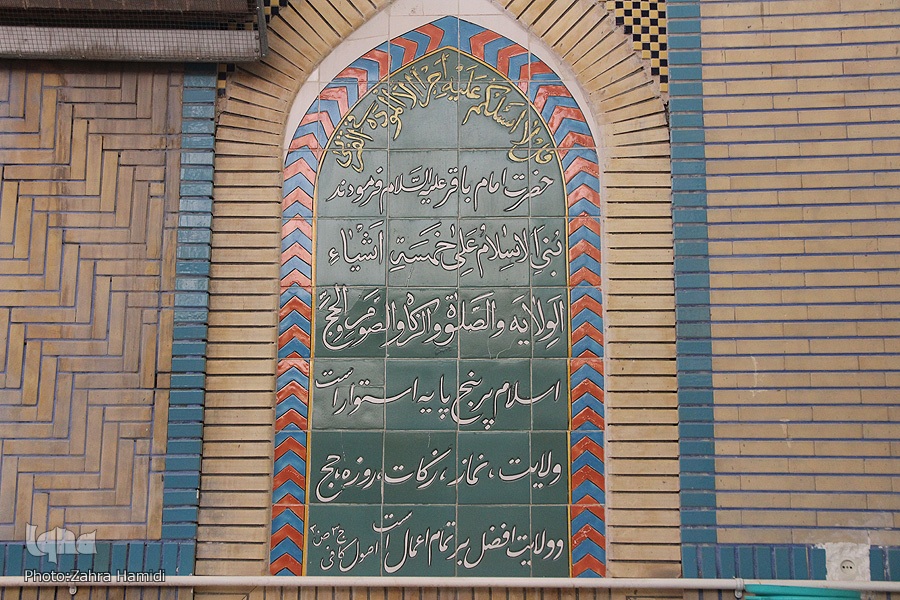 قل لا اسئلکم علیه أجرا الا المودة فی القربی
حضرت امام باقر علیه السّلام فرمودند
بُنی الاِسلامُ عَلی خَمسَةِ اَشیاء
الوِلایه والصَلوة والزکاة والصوم والحجّ
اسلام بر پنج پایه استوار است
ولایت، نماز، زکات، روزه، حج
و ولایت افضل بر تمام اعمال است اصول کافی ج۲ ص
iqna
Photo:Zahra Hamidi